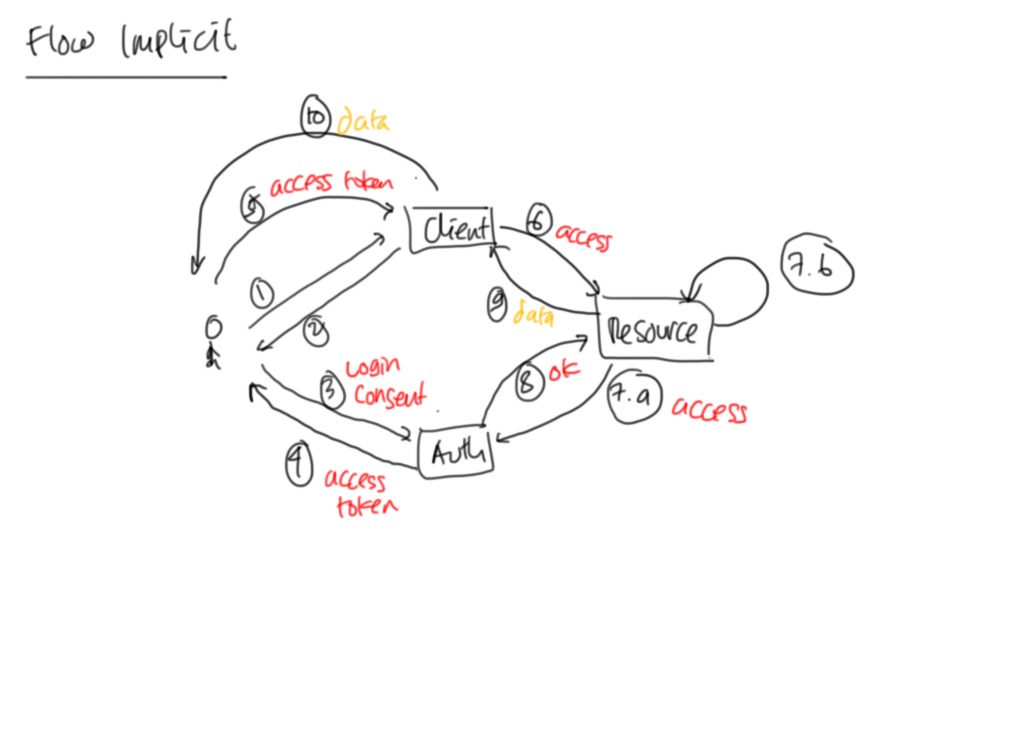 Flow Implicit
10 data
5 access token
Client
6 access
7.b
1
9 data
Resource
2
3 Login
Consent
8 ok
7.a access
Auth
4 access
token